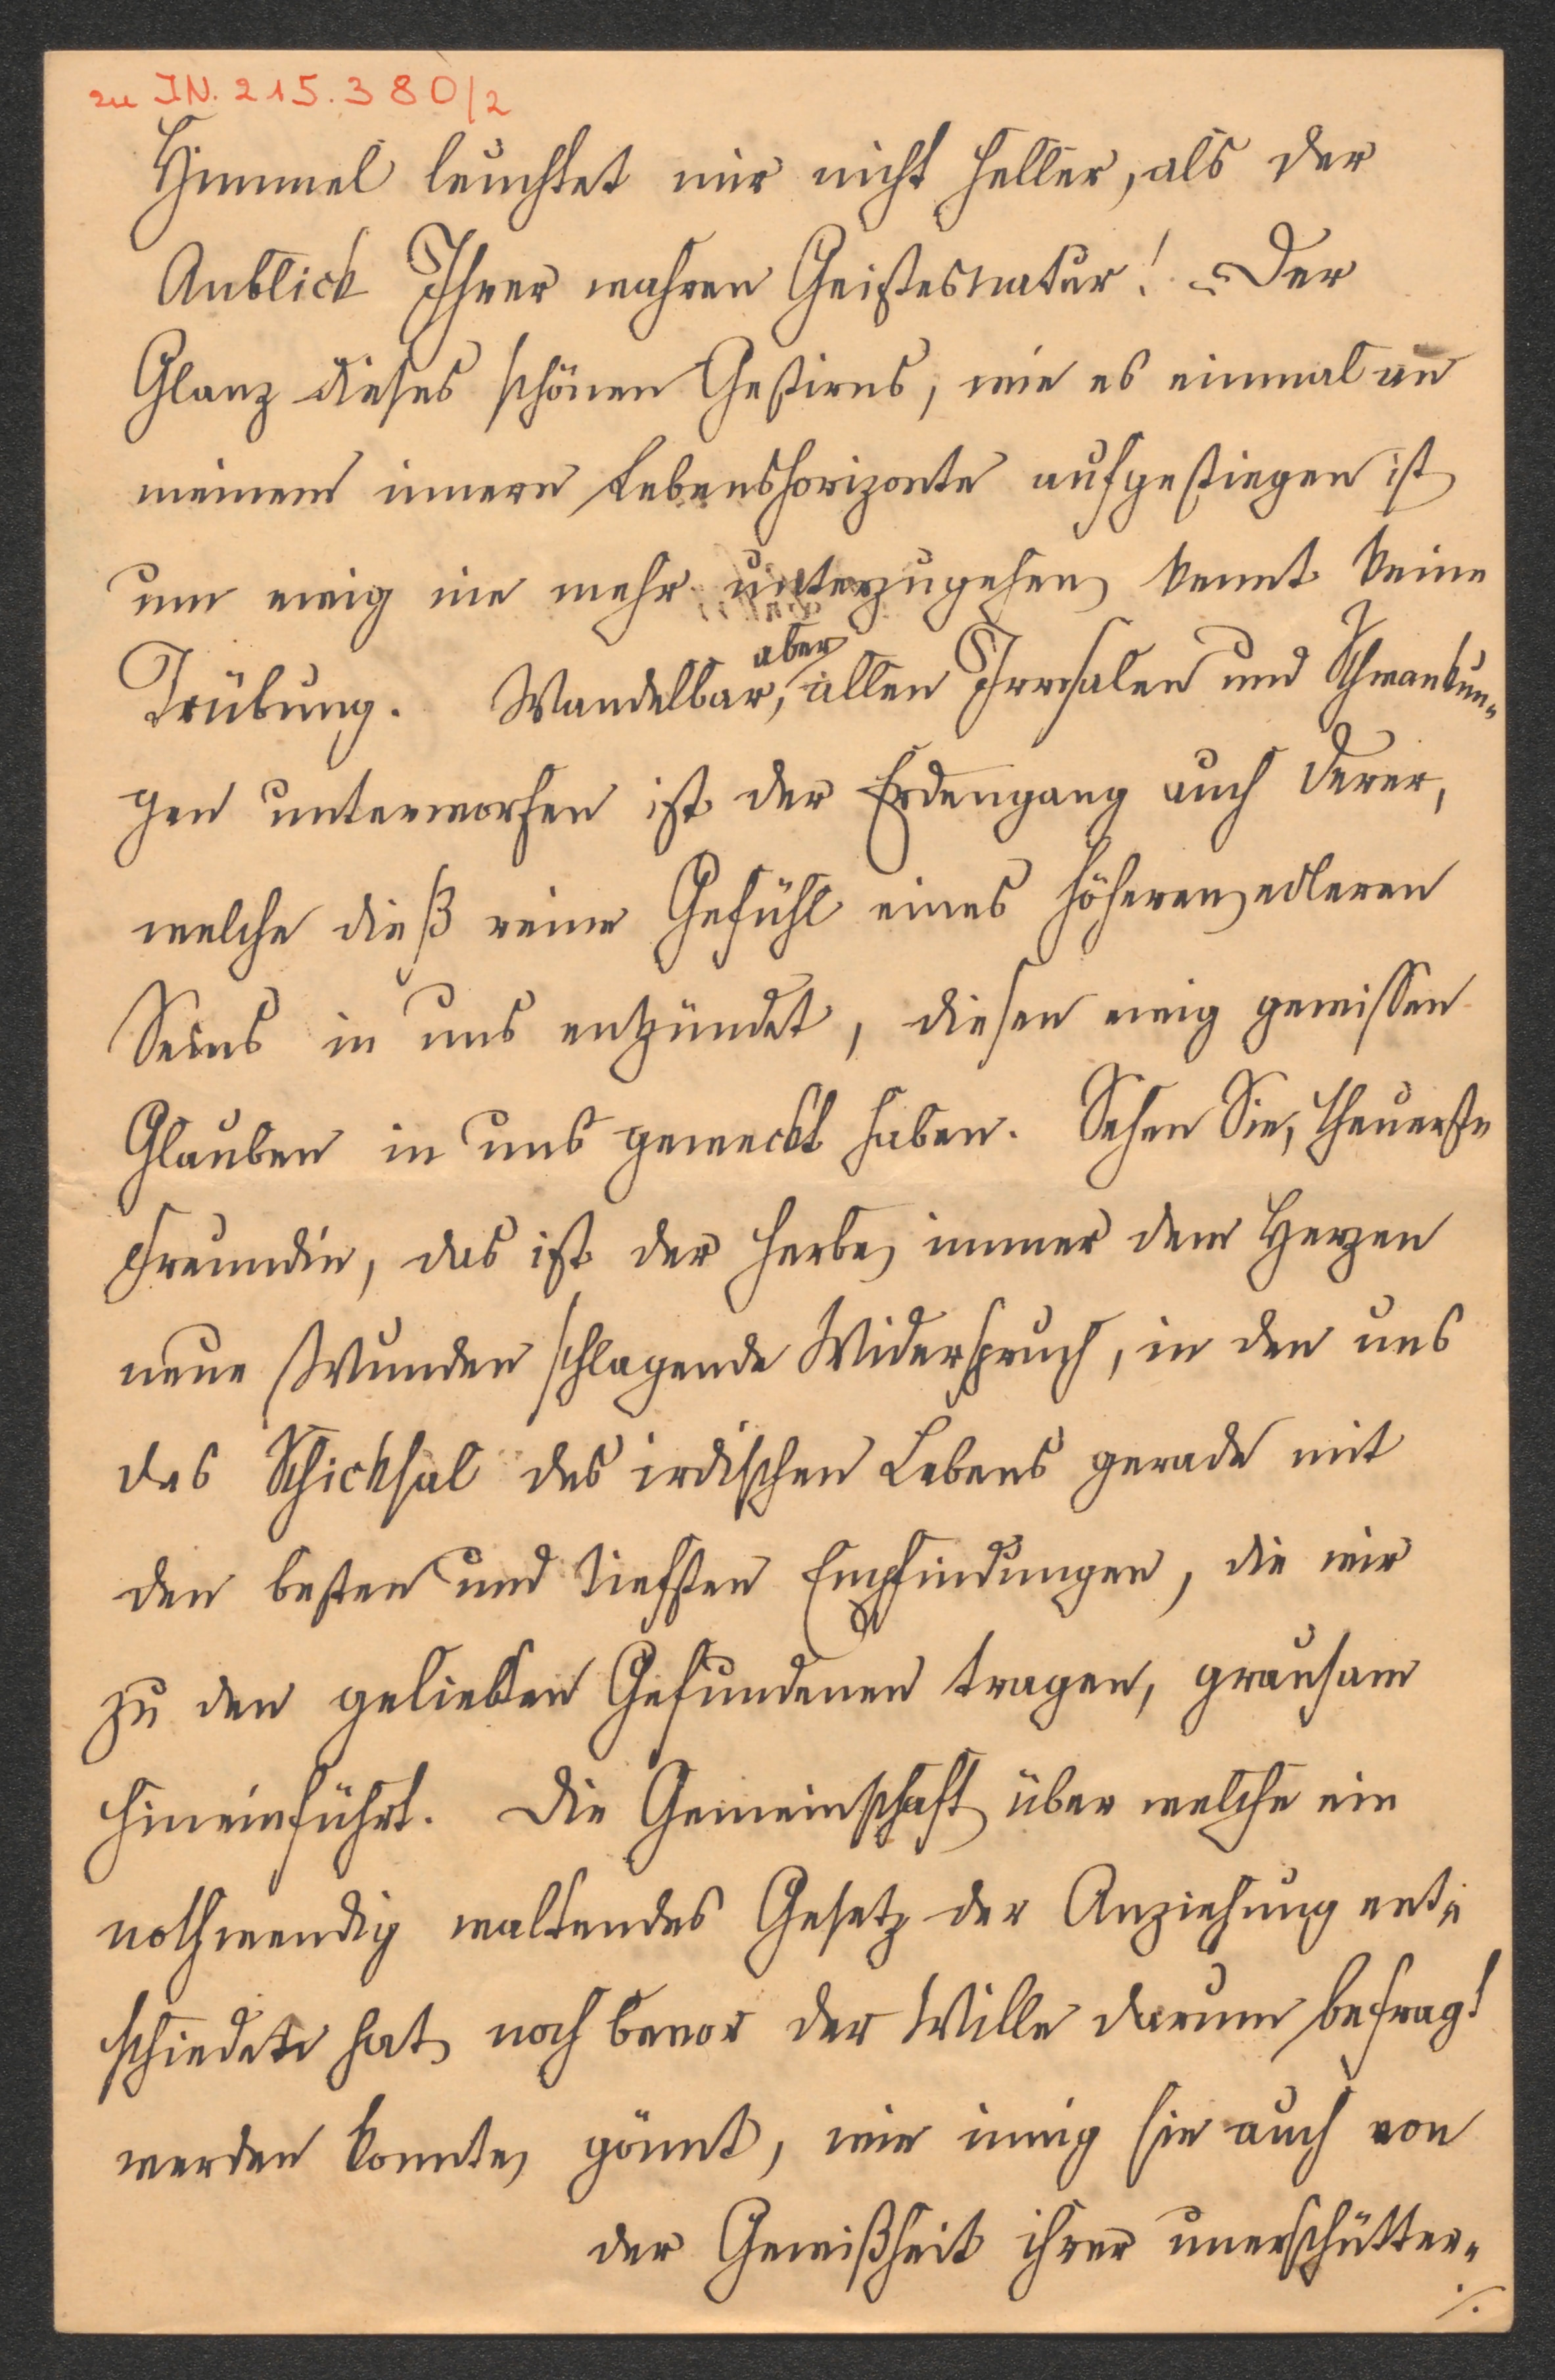 zu IN. 215.380/2
Himmel leuchtet mir nicht heller, als der
Anblick Ihrer wahren Geistesnatur! – Der
Glanz dieses schönen Gestirns, wie es einmal an
meinem innern Lebenshorizonte aufgestiegen ist
um ewig nie mehr unterzugehen, kennt keine
aber
Trübung. Wandelbar, allen Irrsalen und Schwankun-
gen unterworfen ist der Erdengang auch Derer,
welche dieß reine Gefühl eines höheren, edleren
Seins in uns entzündet, diesen ewig gewissen
Glauben in uns geweckt haben. Sehen Sie, theuerste
Freundin, das ist der herbe, immer dem Herzen
neue Wunden schlagende Widerspruch, in den uns
das Schicksal des irdischen Lebens gerade mit
den besten und tiefsten Empfindungen, die wir
zu den geliebten Gefundenen tragen, grausam
hineinführt. Die Gemeinschaft, über welche ein
nothwendig waltendes Gesetz der Anziehung ent-
schiedete hat, noch bevor der Wille darum befragt
werden konnte, gönnt, wie innig sie auch von
der Gewißheit ihrer unerschütter-
./.